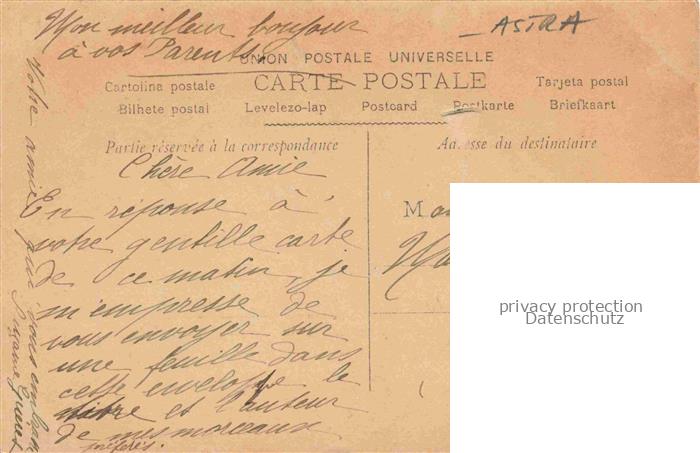 Mon meilleur bonjour
à vos Parents.
- ASTRA
UNION POSTALE UNIVERSELLE
CARTE POSTALE
Cartolina postale
Tarjeta postal
Bilhete postal
Levelezo-lap
Postcard
Postkarte
Briefkaart
Partie réservée à la correspondance
Adresse du destinataire
Chère Amie
En réponse à
votre gentille carte
de ce matin, je
m'empresse de
vous envoyer sur
une feuille dans
cette enveloppe le
titre et l'auteur
de mes morceaux
préférés.
Votre amie qui vous embrasse
Suzanne
M
privacy protection
Datenschutz